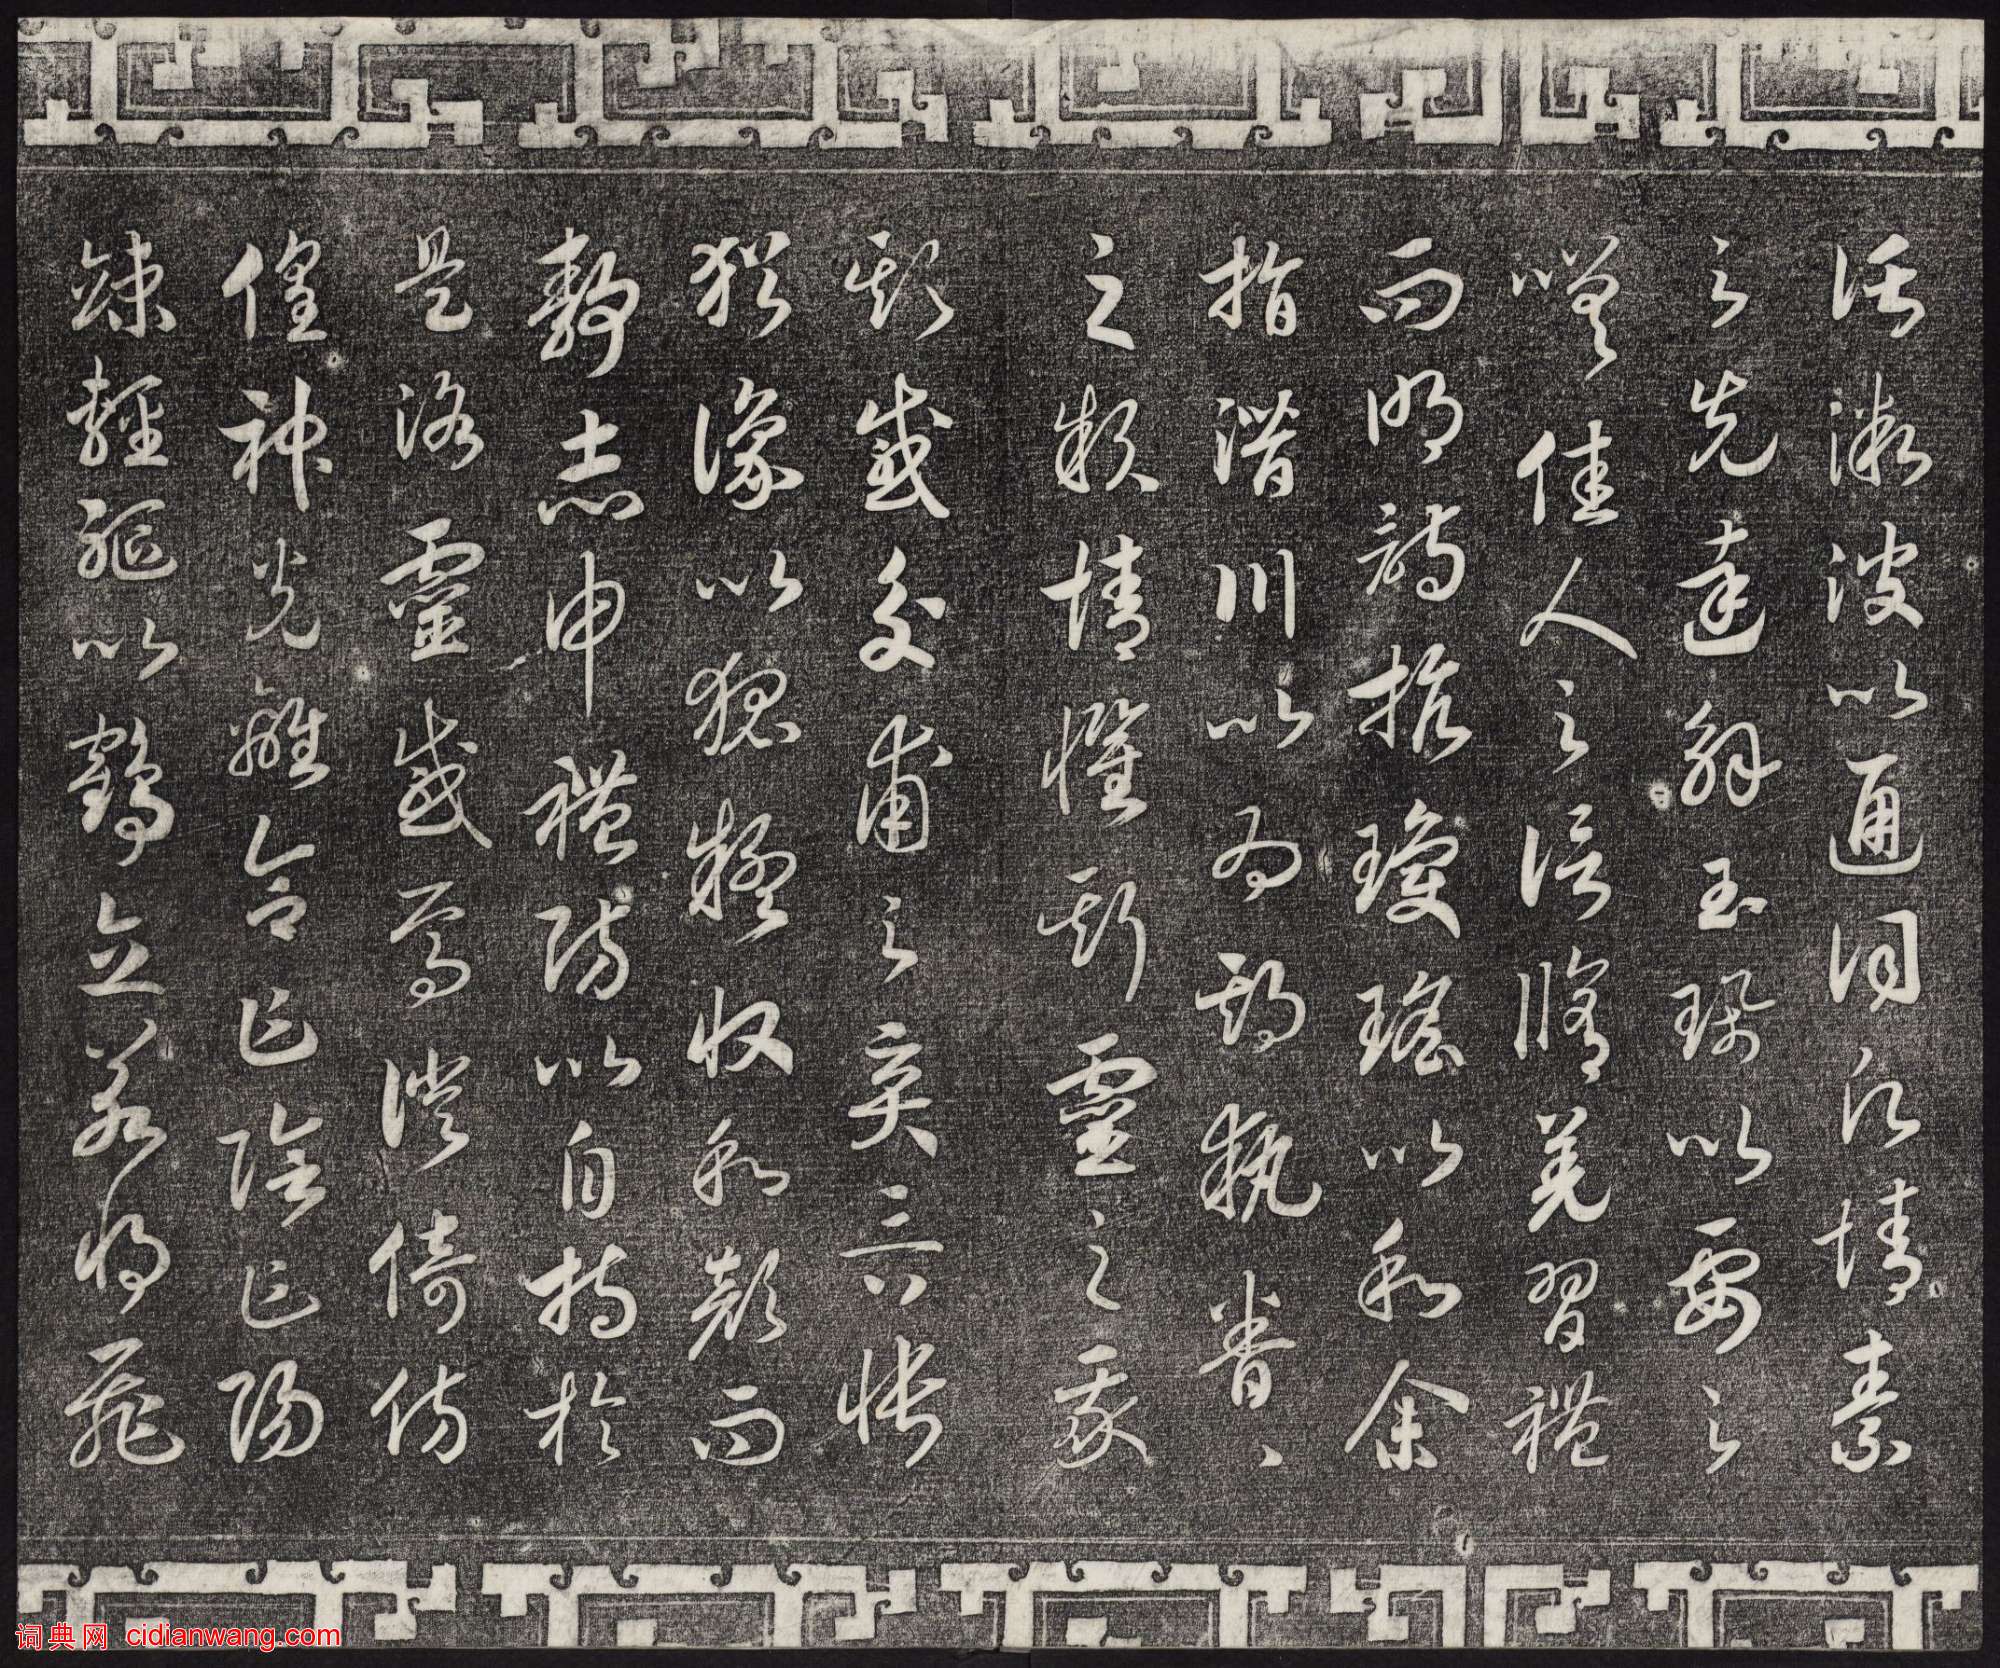 託微波以通詞願情素
之先達解玉珮以要之
嗟佳人之信脩羌習禮
而明詩抗瓊瑤以和余
指潛川以為期執眷、
之款情懼斯靈之我
欺感交甫之棄言悵
猶豫以狐疑收和顏而
靜志申禮防以自持於
是洛靈感焉徙倚仿
偟神光離合乍陰乍陽
竦輕軀以鶴立若將飛
词典网 cidianwang.com